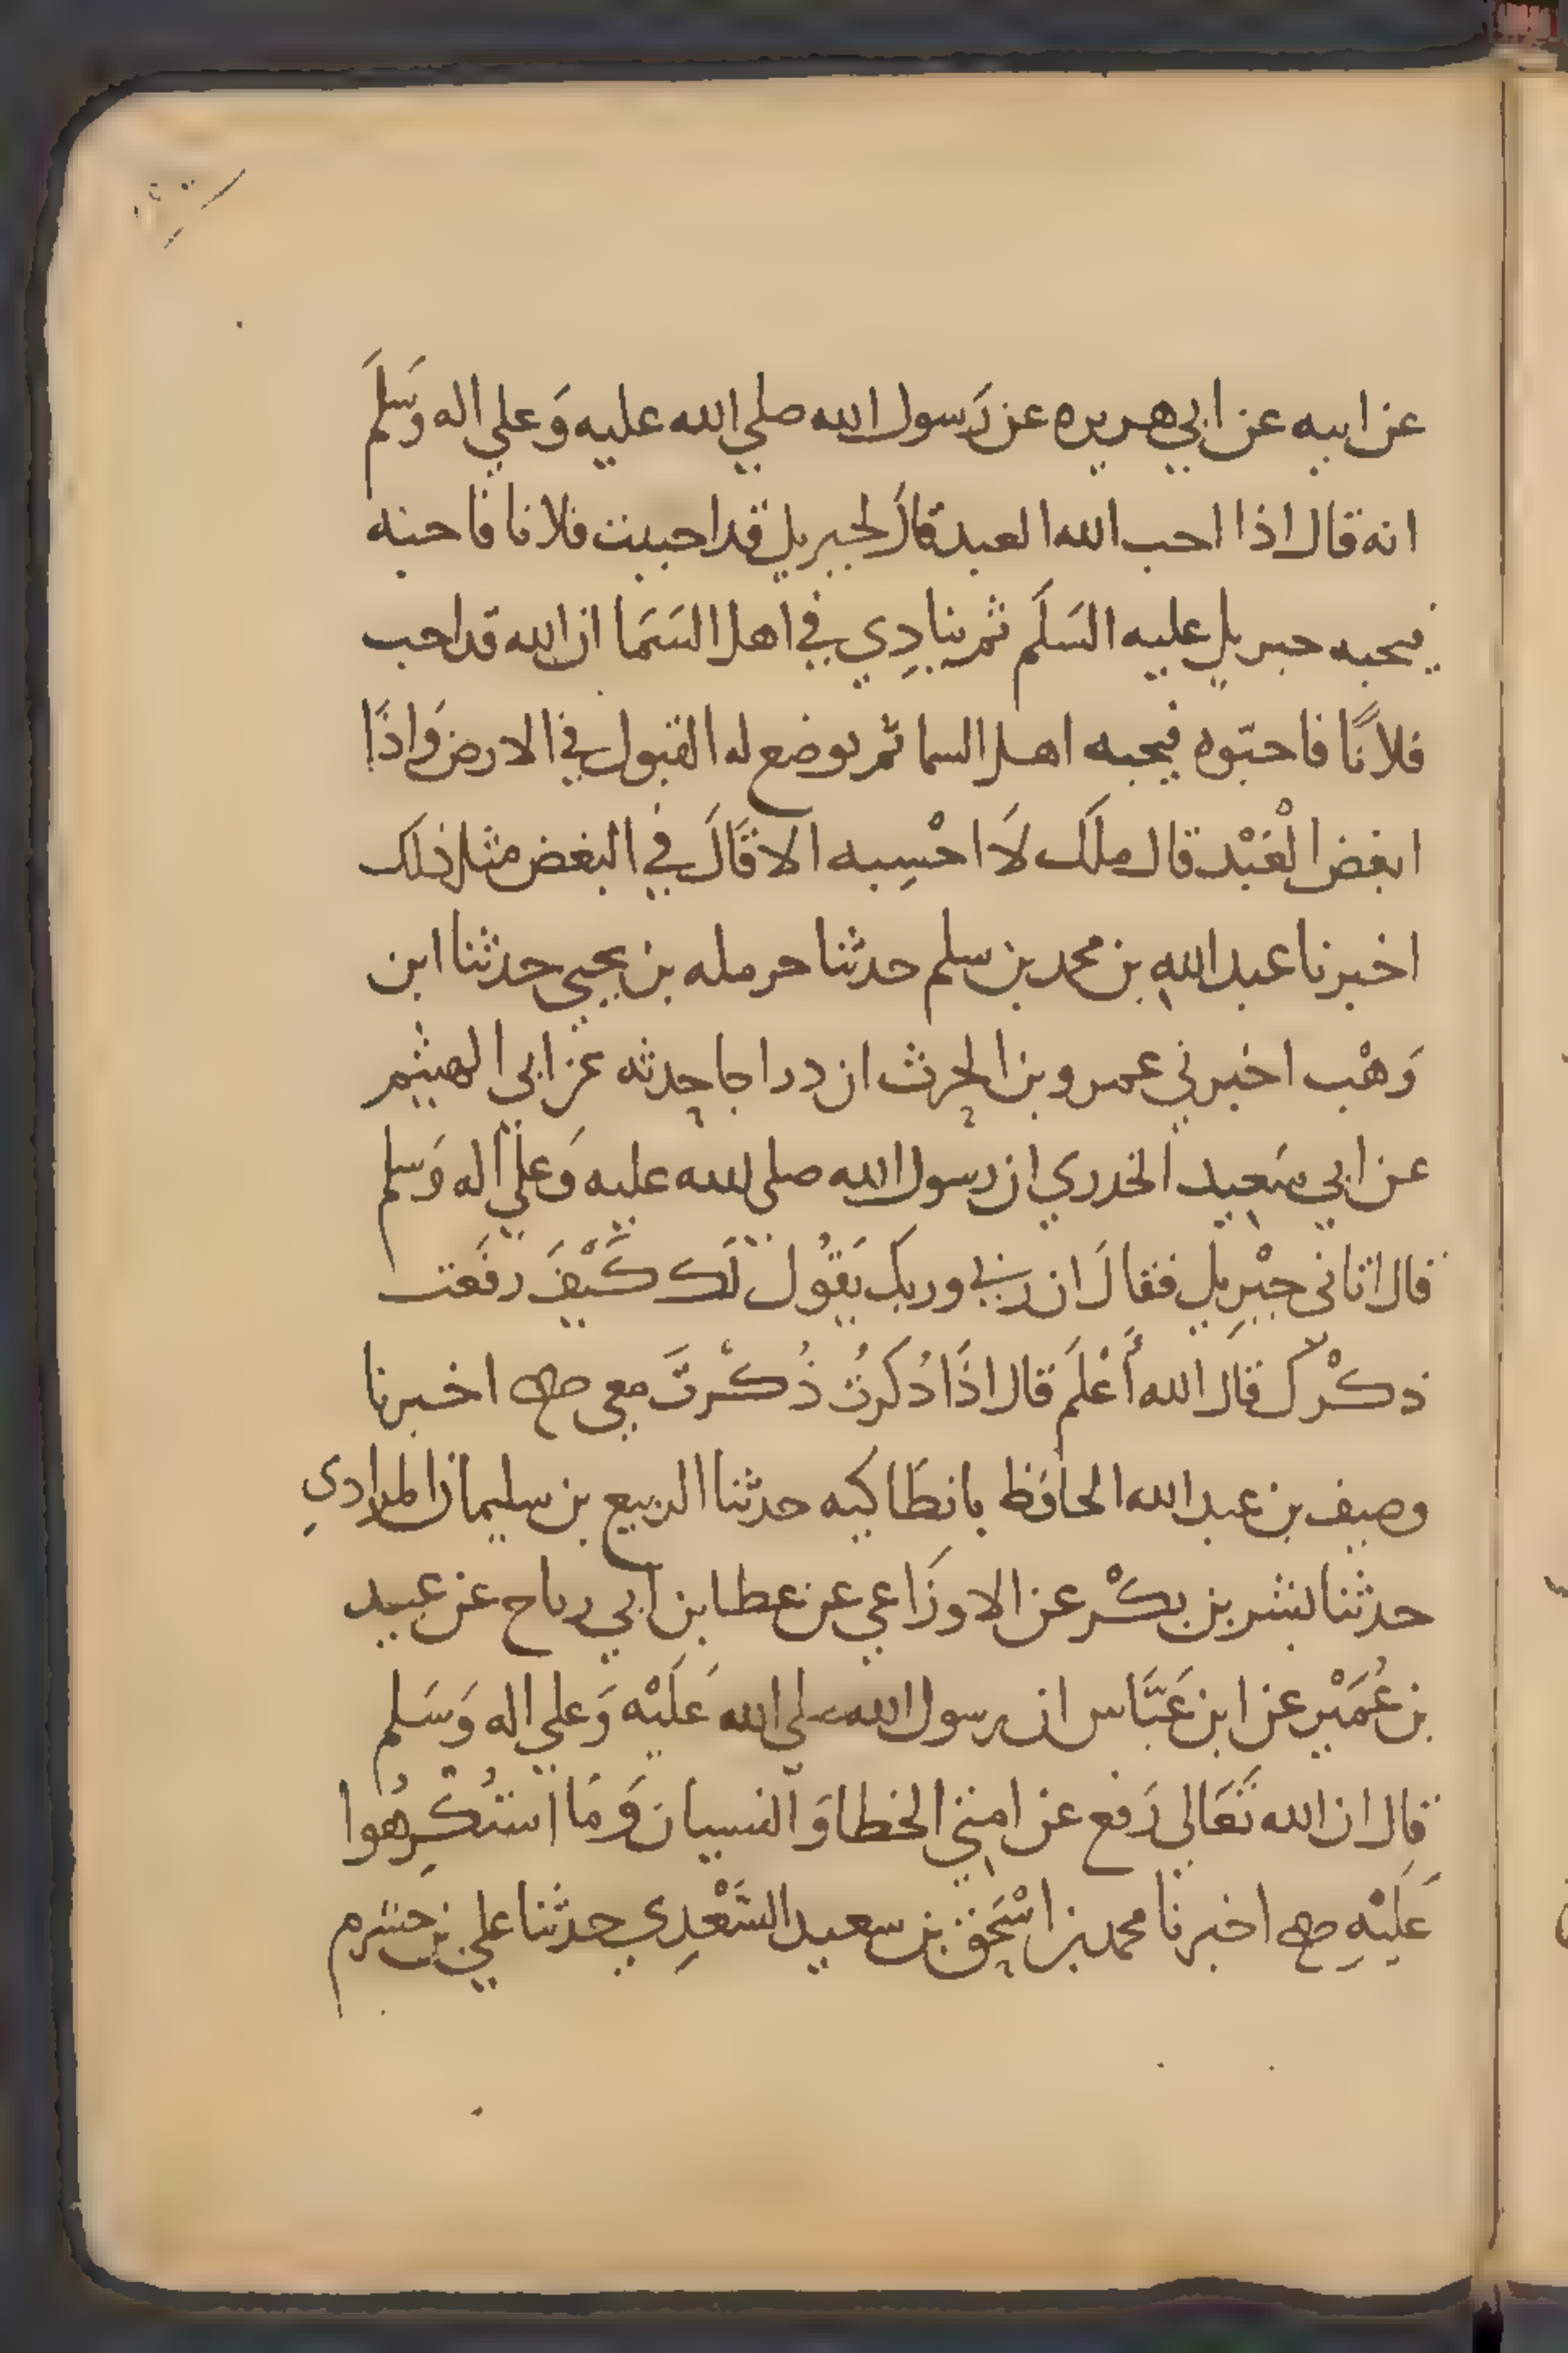 عن ابيه عن ابي هريره عن رَسول الله صلي الله عليه وَعلي اله وَسَلمَ
انه قال اذا احب الله العبد قالَ لجبريل قد احببت فلانا فاحبه
فيحبه جبريل عليه السَلَم ثم ينادِي في اهل السَمَا ان الله قد احب
فلانًا فاحبّوه فيحبه اهل السما ثم يوضع له القبول في الارض وَاذَا
ابغض الْعَبْد قال ملَك لَا احْسِبه الا قَالَ في البغض مثل ذلك
اخبرنا عبد اللهِ بن محمد بن سلم حدثنا حرمله بن يحيي حدثنا ابن
وَهْب اخبرني عمرو بن الحرث ان دراجا حدثه عن ابي الهيثم
عن ابي سَعيد الخدري ان رسول الله صلى الله عليه وَعلي اله وَسلم
قال اتاني جبْرِيل فقالَ ان ربي وربك يَقُول لَك كَيْفَ رفَعت
ذكْرك قال الله أَعْلَم قال اذَا ذُكرتُ ذُكْرتَ معي صح اخبرنا
وصيف بن عبد الله الحافظ بانطَاكيه حدثنا الربيع بن سليمان المرادي
حدثنا بشر بن بكْر عن الاوزَاعي عن عطا بن ابي رباح عن عبيد
بن عُمَيْر عن ابن عَبَّاس ان رسول الله صلي الله عَلَيْه وَعلي اله وَسَلم
قال ان الله تَعَالي رَفع عن امتي الخطا وَالنسيان وَمَا استُكْرِهُوا
عَلَيْهِ صح اخبرنا محمد بن اسْحَق بن سعيد السَّعْدِي حدثنا علي بن خشرم